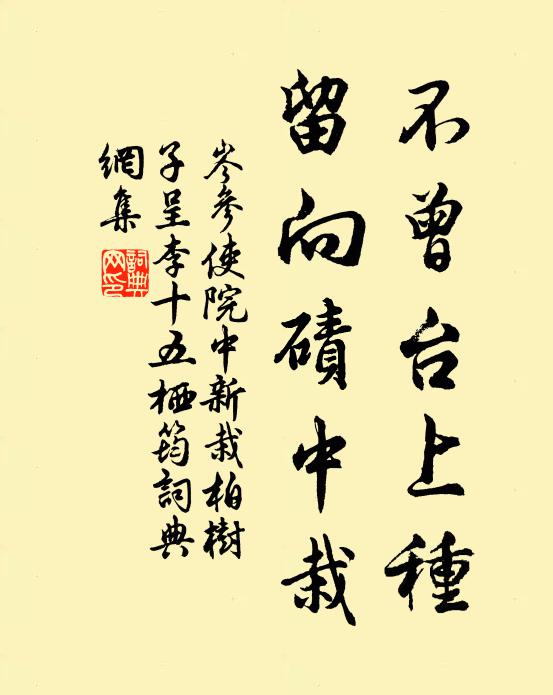 不曾台上種
留向磧中栽
岑參使院中新栽柏樹
子呈李十五栖筠詞典
網集
詞典
网印